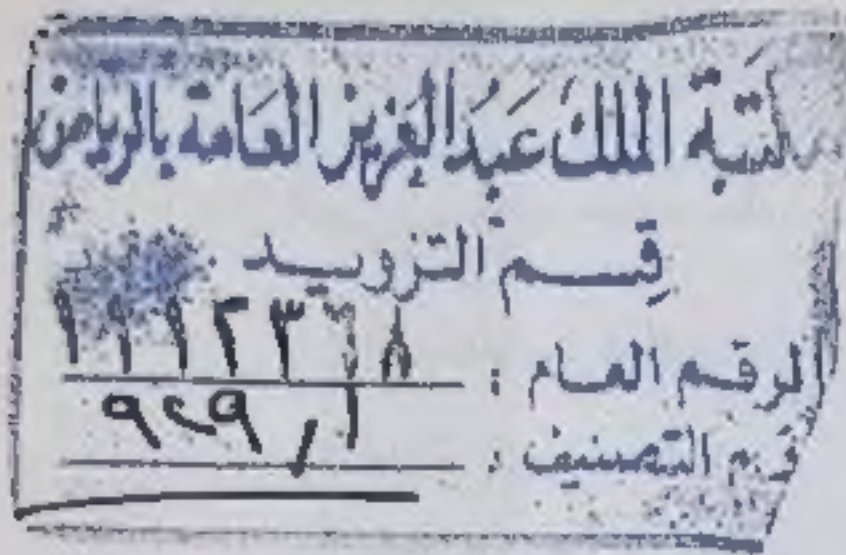 مكتبة الملك عبد العزيز العامة بالرياض
قسم التزويد
الرقم العام :
رقم التصنيف : ٩٢٩٫١